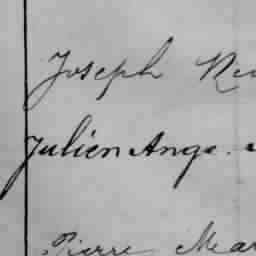 Joseph
Julien Ange
Pierre Mar